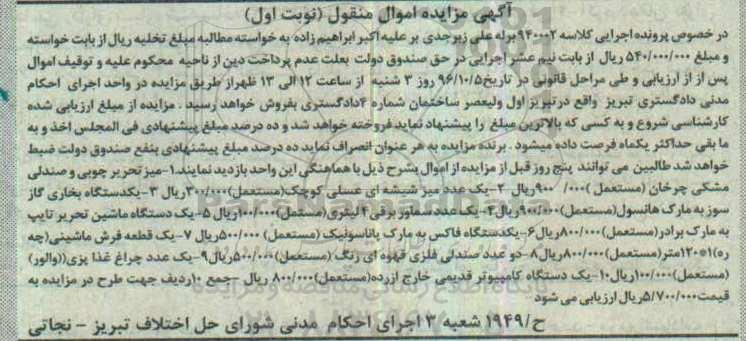 آگهی مزایده اموال منقول (نوبت اول)
در خصوص پرونده اجرایی کلاسه ۹۴۰۰۰۲ برله علی زبرجدی بر علیه اکبر ابراهیم زاده به خواسته مطالبه مبلغ تخلیه ریال از بابت خواسته
و مبلغ ۵۴۰/۰۰۰/۰۰۰ ریال از بابت نیم عشر اجرایی در حق صندوق دولت بعلت عدم پرداخت دین از ناحیه محکوم علیه و توقیف اموال
پس از از ارزیابی و طی مراحل قانونی در تاریخ ۹۶/۱۰/۵ روز ۳ شنبه از ساعت ۱۲ الی ۱۳ ظهر از طریق مزایده در واحد اجرای احکام
مدنی دادگستری تبریز واقع در تبریز اول ولیعصر ساختمان شماره ۴ دادگستری بفروش خواهد رسید . مزایده از مبلغ ارزیابی شده
کارشناسی شروع و به کسی که بالاترین مبلغ را پیشنهاد نماید فروخته خواهد شد و ده درصد مبلغ پیشنهادی فی المجلس اخذ و به
ما بقی حداکثر یکماه فرصت داده میشود . برنده مزایده به هر عنوان انصراف نماید ده درصد مبلغ پیشنهادی بنفع صندوق دولت ضبط
خواهد شد طالبین می توانند پنج روز قبل از مزایده از اموال بشرح ذیل با هماهنگی این واحد بازدید نمایند.۱-میز تحریر چوبی و صندلی
مشکی چرخان (مستعمل )۹۰۰/۰۰۰ ریال ۲-یک عدد میز شیشه ای عسلی کوچک(مستعمل)۳۰۰/۰۰۰ریال ۳-یکدستگاه بخاری گاز
سوز به مارک هانسول(مستعمل)۹۰۰/۰۰۰ریال۴-یک عدد سماور برقی ۴ لیتری (مستمل)۱۰۰/۰۰۰ریال ۵-یک دستگاه ماشین تحریر تایپ
به مارک برادر(مستعمل)۸۰۰/۰۰۰ریال۶-یکدستگاه فاکس به مارک پاناسونیک (مستعمل) ۵۰۰/۰۰۰ریال ۷-یک قطعه فرش ماشینی(چه
ره)۱*۱۲۰متر(مستعمل)۸۰۰/۰۰۰ریال۸-دو عدد صندلی فلزی قهوه ای رنگ (مستعمل)۵۰۰/۰۰۰ریال۹-یک عدد چراغ غذا پزی((والور)
(مستعمل)۱۰۰/۰۰۰ریال۱۰-یک دستگاه کامپیوتر قدیمی خارج ازرده(مستعمل) ۸۰۰/۰۰۰ ریال -جمع ۱۰ردیف جهت طرح در مزایده به
قیمت۵/۷۰۰/۰۰۰ریال ارزیابی می شود
ح/۱۹۴۹ شعبه ۳ اجرای احکام مدنی شورای حل اختلاف تبریز - نجاتی